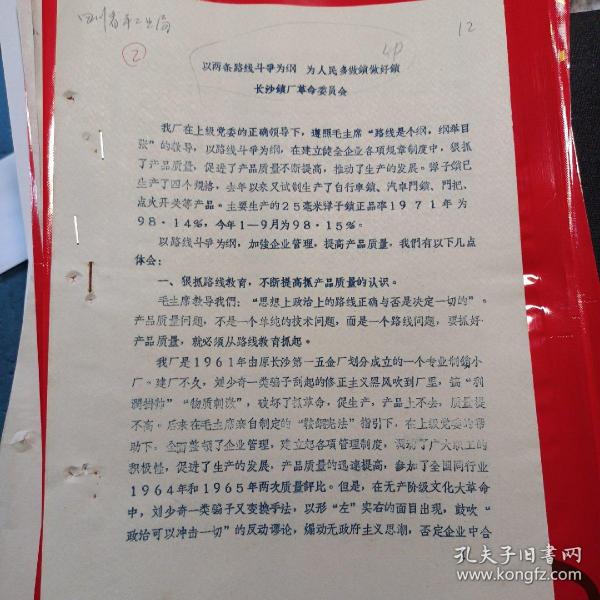 四川省手工业局
②
12
以两条路线斗争为纲　为人民多做鎖做好鎖
长沙鎖厂革命委员会
我厂在上级党委的正确领导下，遵照毛主席“路线是个纲，纲举目
张”的教导，以路线斗争为纲，在建立健全企业各项规章制度中，狠抓
了产品质量，促进了产品质量不断提高，推动了生产的发展。弹子鎖已
生产了四个规格，去年以来又试制生产了自行车鎖、汽車門鎖、門把、
点火开关等产品。主要生产的25毫米弹子鎖正品率1971年为
98·14％，今年1—9月为98·15％。
以路线斗争为纲，加強企业管理，提高产品质量，我們有以下几点
体会：
一、狠抓路线教育，不断提高抓产品质量的认识。
毛主席教导我們：“思想上政治上的路线正确与否是决定一切的”。
产品质量问题，不是一个单纯的技术问题，而是一个路线问题，要抓好
产品质量，就必须从路线教育抓起。
我厂是1961年由原长沙第一五金厂划分成立的一个专业制鎖小
厂。建厂不久，刘少奇一类骗子刮起的修正主义黑风吹到厂里，搞“利
潤掛帅”“物质刺激”，破坏了抓革命，促生产，产品上不去，质量提
不高。后来在毛主席亲自制定的“鞍鋼宪法”指引下，在上级党委的帮
助下，全面整頓了企业管理，建立起各项管理制度，调动了广大职工的
积极性，促进了生产的发展，产品质量的迅速提高，参加了全国同行业
1964年和1965年两次质量評比。但是，在无产阶级文化大革命
中，刘少奇一类骗子又变换手法，以形“左”实右的面目出现，鼓吹“
政治可以冲击一切”的反动谬论，煽动无政府主义思潮，否定企业中合
孔夫子旧书网
www.kongfz.com